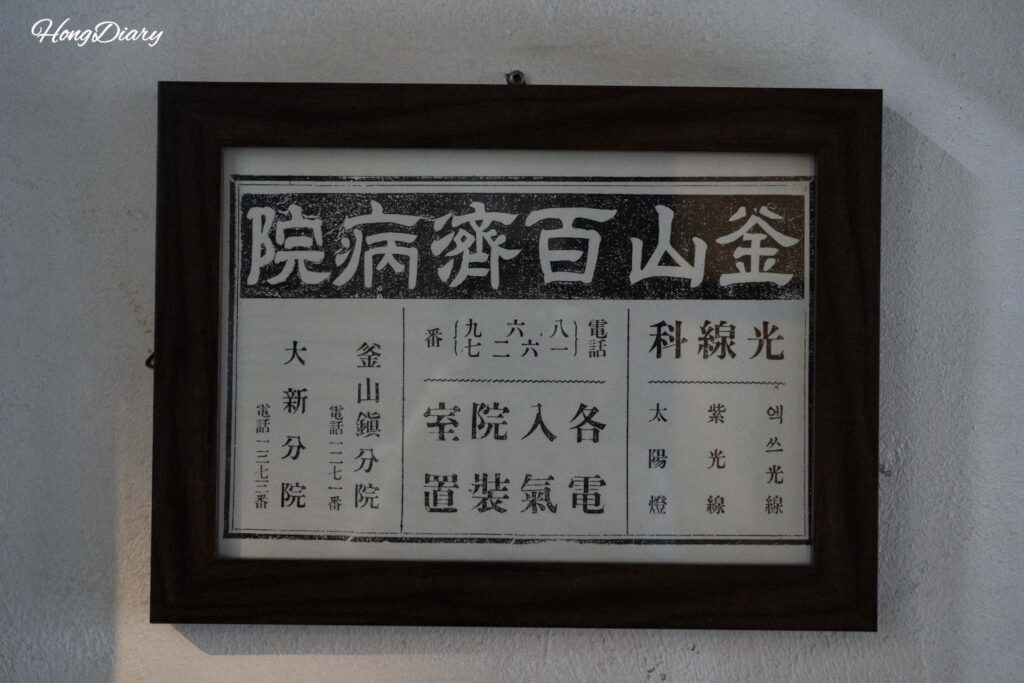 HongDiary
釜山百濟病院
光線科
엑쓰光線
紫光線
太陽燈
電話
八一
六六二
九七
番
各入院室
電氣裝置
釜山鎭分院
電話一二七一番
大新分院
電話一三七三番